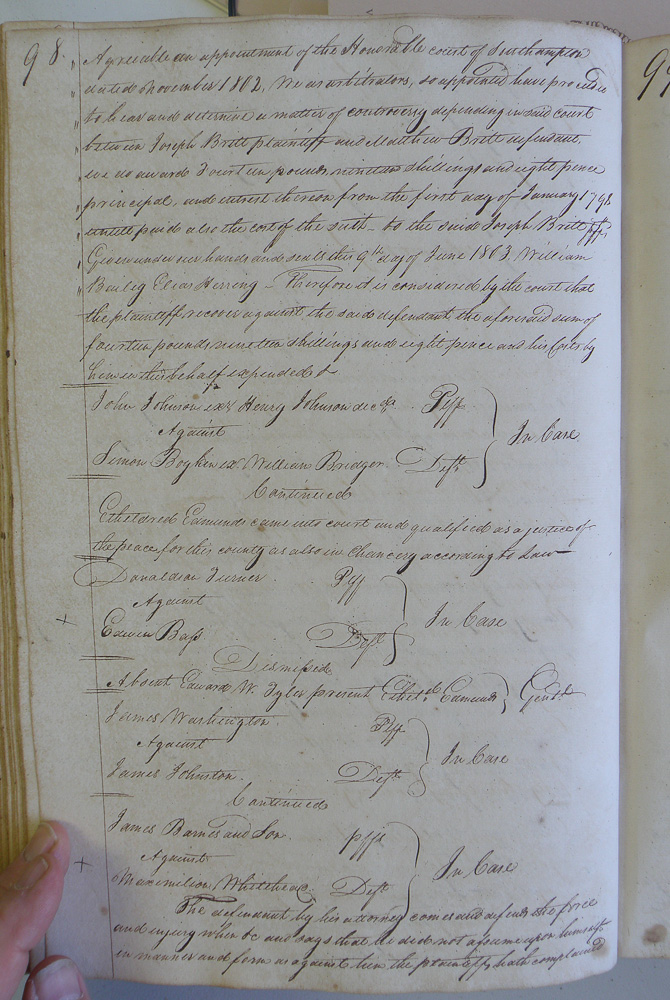 98.
" Agreeable an appointment of the Honorable court of Southampton
dated November 1802, We as arbitrators, so appointed have proceeded
" to hear and determine a matter of controversy depending in said court
" between Joseph Britt plaintiff and Matthew Britt defendant.
" we do award Fourteen pounds nineteen shillings and eight pence
" principal, and intrest thereon from the first day of January 1798
" untill paid also the cost of the suit – to the said Joseph Britt plff.
" Given under our hands and seals this 9th day of June 1803. William
" Bailey Elias Herring – Therefore it is considered by the court that
the plaintiff recover against the said defendant the aforesaid sum of
fourteen pounds nineteen shillings and eight pence and his Costs by
him in this behalf expended &
John Johnson exr Henry Johnson decd. Plff
Against
In Case
Simon Boykin ex William Bridger Deft
Continued
Etheldred Edmunds came into court and qualified as a justice of
the peace for this county as also in Chancery according to Law
Donaldson Turner Plff
Against
In Case
Edwin Bass Deft
Dismissed
Absent Edward W. Tyler present Etheld. Edmunds Gent
James Washington Plff
Against
In Case
James Johnston. Deft
Continued
James Barnes and Son. plffs
Against
In Case
Maximilion Whitehead. Deft
The defendant by his attorney comes and defends the force
and injury when &c and says that he did not assume upon himself
in manner and form as against him the plaintiffs hath complained